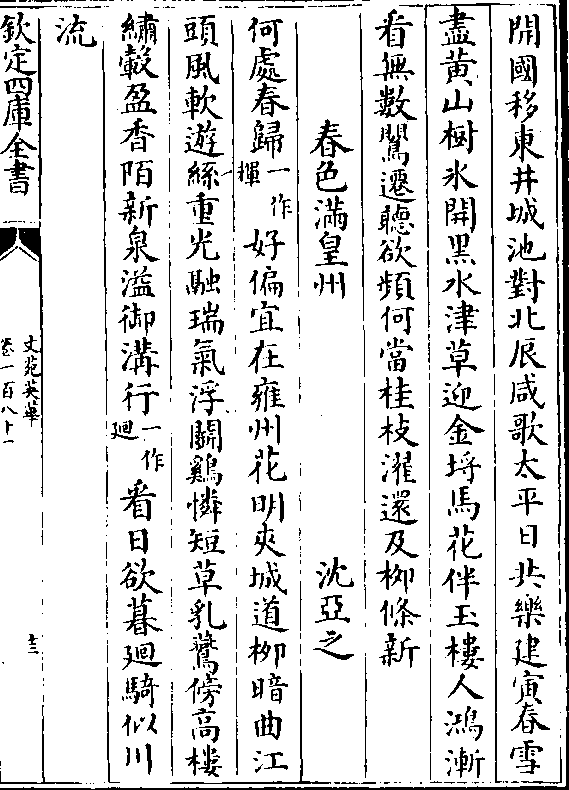 開國移東井城池對北辰咸歌太平日共樂建寅春雪
盡黄山樹氷開黑水津草迎金埓馬花伴玉樓人鴻漸
看無數鶯遷聽欲頻何當桂枝濯還及栁條新
春色滿皇州 沈亞之
何處春歸一作輝好偏宜在雍州花明夾城道栁暗曲江
頭風軟遊絲重光融瑞氣浮鬭鷄憐短草乳鷰傍高樓
繡轂盈香陌新泉溢御溝行一作廻看日欲暮廻騎似川
流
欽定四庫全書
文苑英華
卷一百八十一
十三